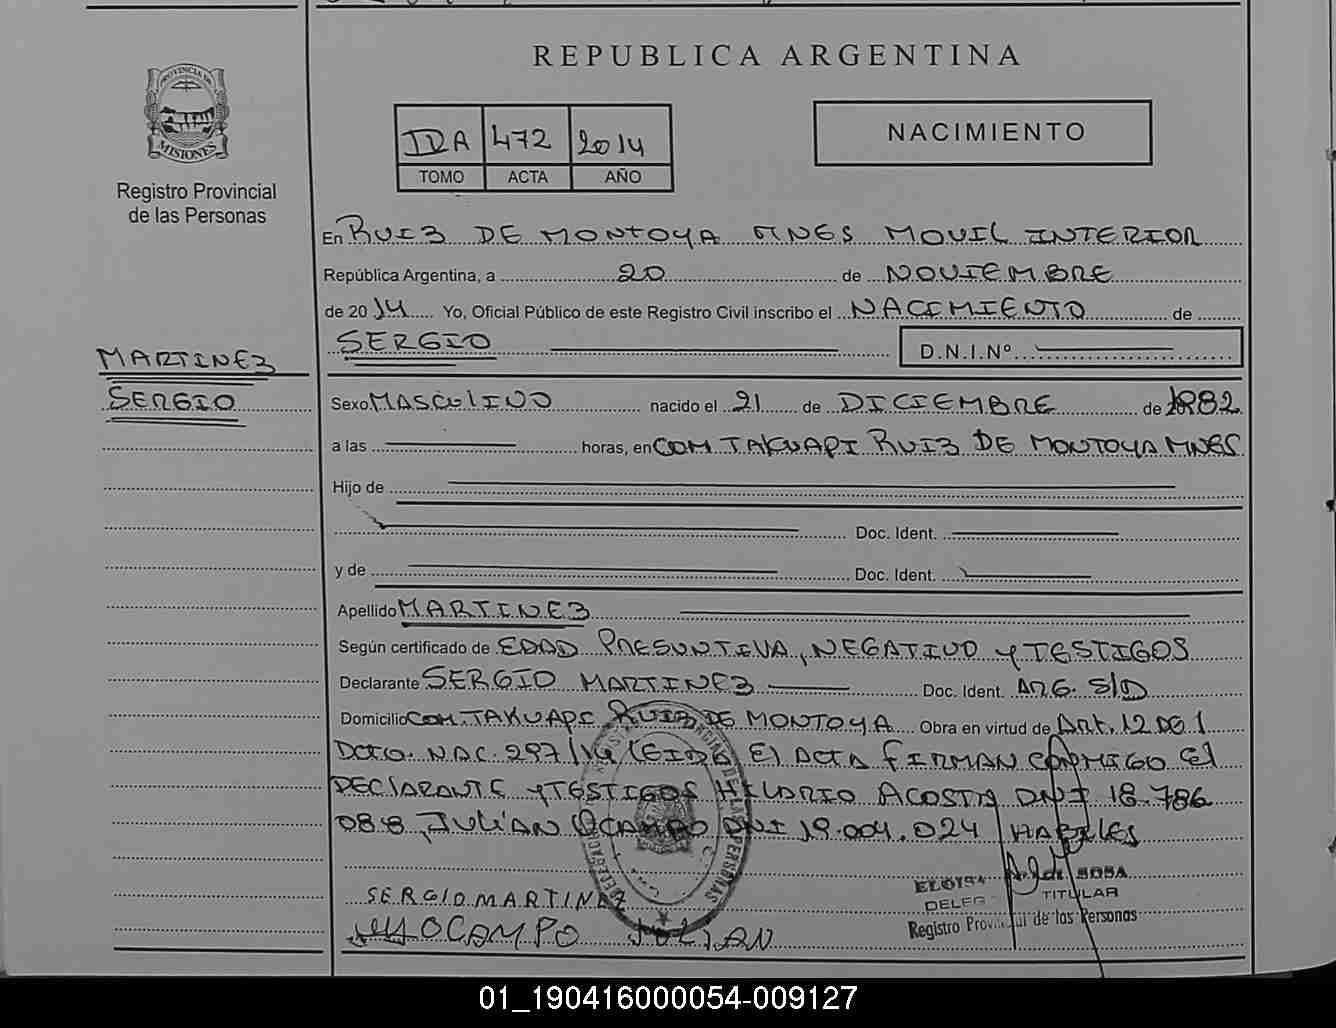 REPUBLICA ARGENTINA
PROVINCIA DE
MISIONES
Registro Provincial
de las Personas
IDA 472 2014
TOMO ACTA AÑO
NACIMIENTO
En RUIZ DE MONTOYA MNES MOVIL INTERIOR
República Argentina, a 20 de NOVIEMBRE
de 2014 Yo, Oficial Público de este Registro Civil inscribo el NACIMIENTO de
SERGIO D.N.I.Nº
MARTINEZ
SERGIO
Sexo MASCULINO nacido el 21 de DICIEMBRE de 1982
a las horas, en COM. TAKUAPI RUIZ DE MONTOYA MNES
Hijo de
Doc. Ident.
y de Doc. Ident.
Apellido MARTINEZ
Según certificado de EDAD PRESUNTIVA, NEGATIVO Y TESTIGOS
Declarante SERGIO MARTINEZ Doc. Ident. ARG. S/D
Domicilio COM. TAKUAPI RUIZ DE MONTOYA Obra en virtud de Art. 12 DEl
Dcto. NAC. 297/14 LEIDA El ACTA FIRMAN CONMIGO El
DECLARANTE Y TESTIGOS HILARIO ACOSTA DNI 18.786
088, JULIAN OCAMPO DNI 19.004.024 HABILES
SERGIO MARTINEZ
OCAMPO JULIAN
SOSA
TITULAR
Registro Provincial de las Personas
01_190416000054-009127